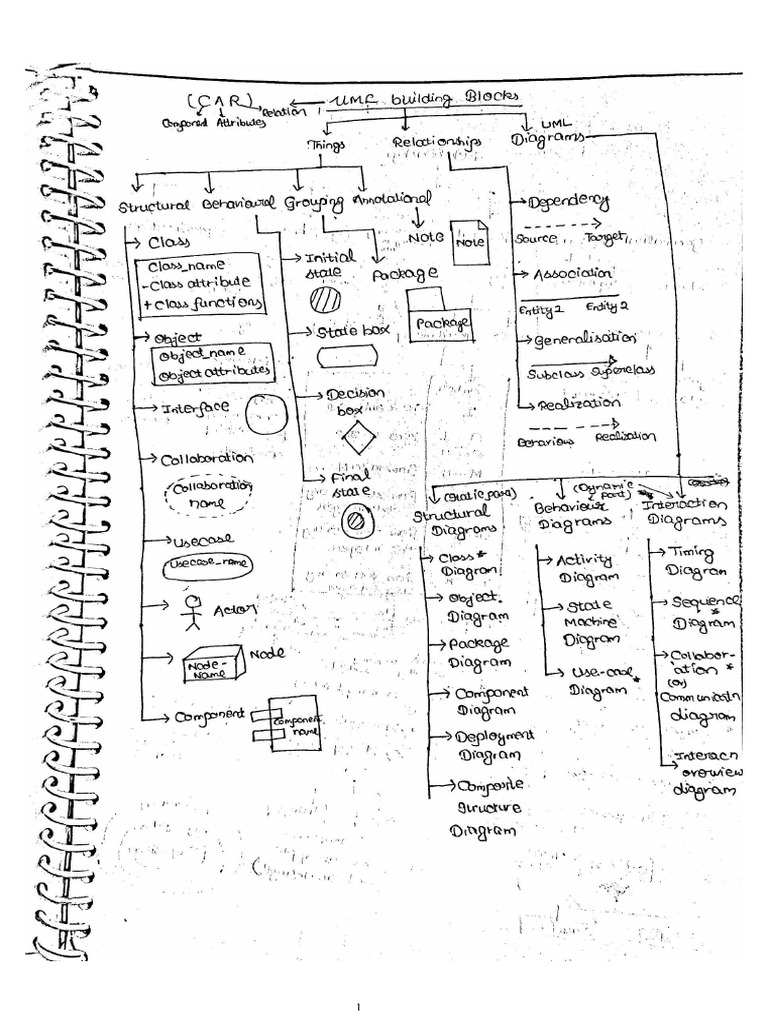 (CAR) Relation ← UML building Blocks
Component Attributes
Things Relationships UML Diagrams
Structural Behavioural Grouping Annotational
→ Class
Class_name
- Class attribute
+ Class functions
→ Object
Object_name
Object attributes
→ Interface
→ Collaboration
Collaboration
name
→ Usecase
Usecase_name
→ Actor
→ Node
Node-
Name
→ Component
Component
name
→ Initial
state
→ State box
→ Decision
box
→ Final
state
Package
Package
Note
Note
→ Dependency
Source Target
→ Association
Entity 1 Entity 2
→ Generalisation
Subclass Superclass
→ Realization
Behaviour Realisation
(Static part)
Structural
Diagrams
→ Class *
Diagram
→ Object
Diagram
→ Package
Diagram
→ Component
Diagram
→ Deployment
Diagram
→ Composite
Structure
Diagram
(Dynamic
part)
Behaviour
Diagrams
→ Activity
Diagram
→ State
Machine
Diagram
→ Use-case *
Diagram
Interaction
Diagrams
→ Timing
Diagram
→ Sequence *
Diagram
→ Collabor-
ation *
(or)
Communicatn
diagram
→ Interacn
overview
diagram
1